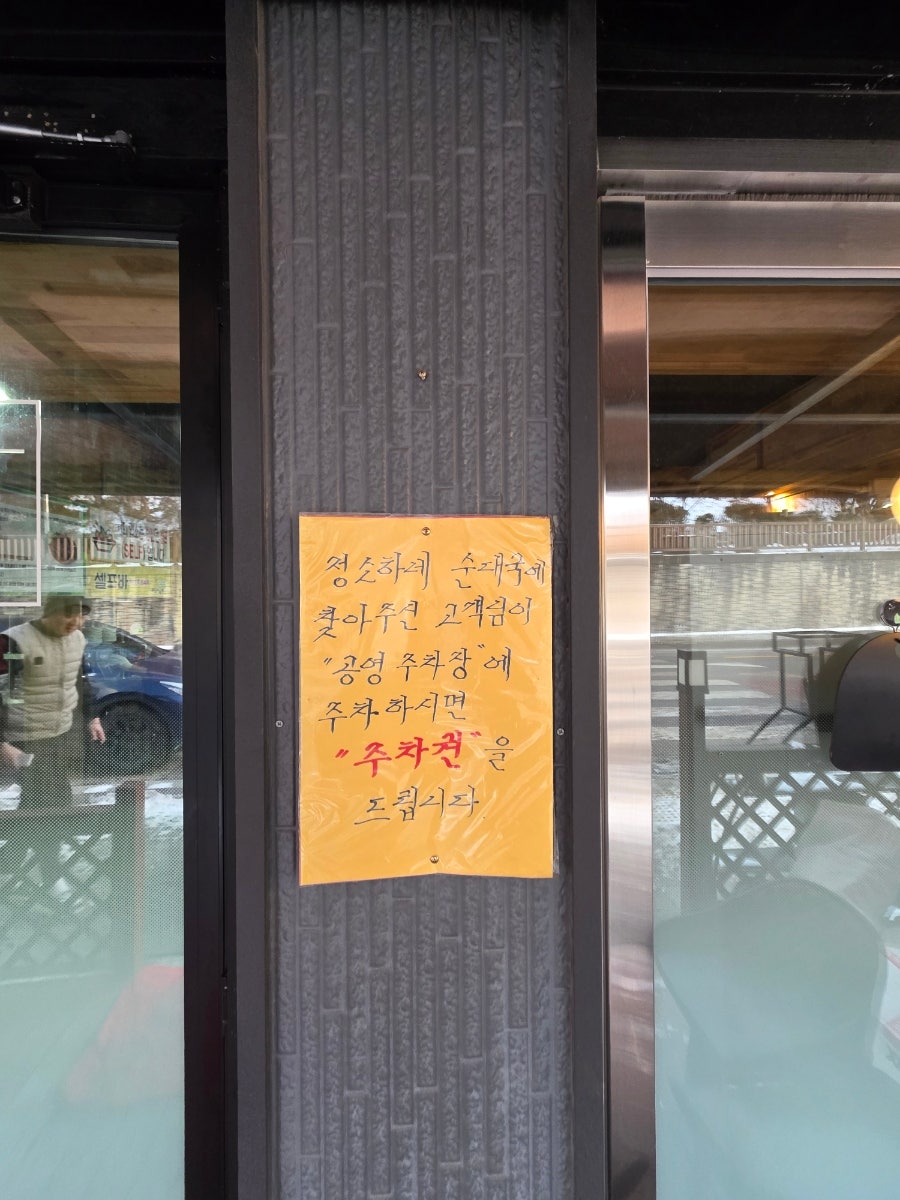 정소하네 순대국에
찾아주신 고객님이
"공영 주차장"에
주차하시면
"주차권"을
드립니다.
셀프바